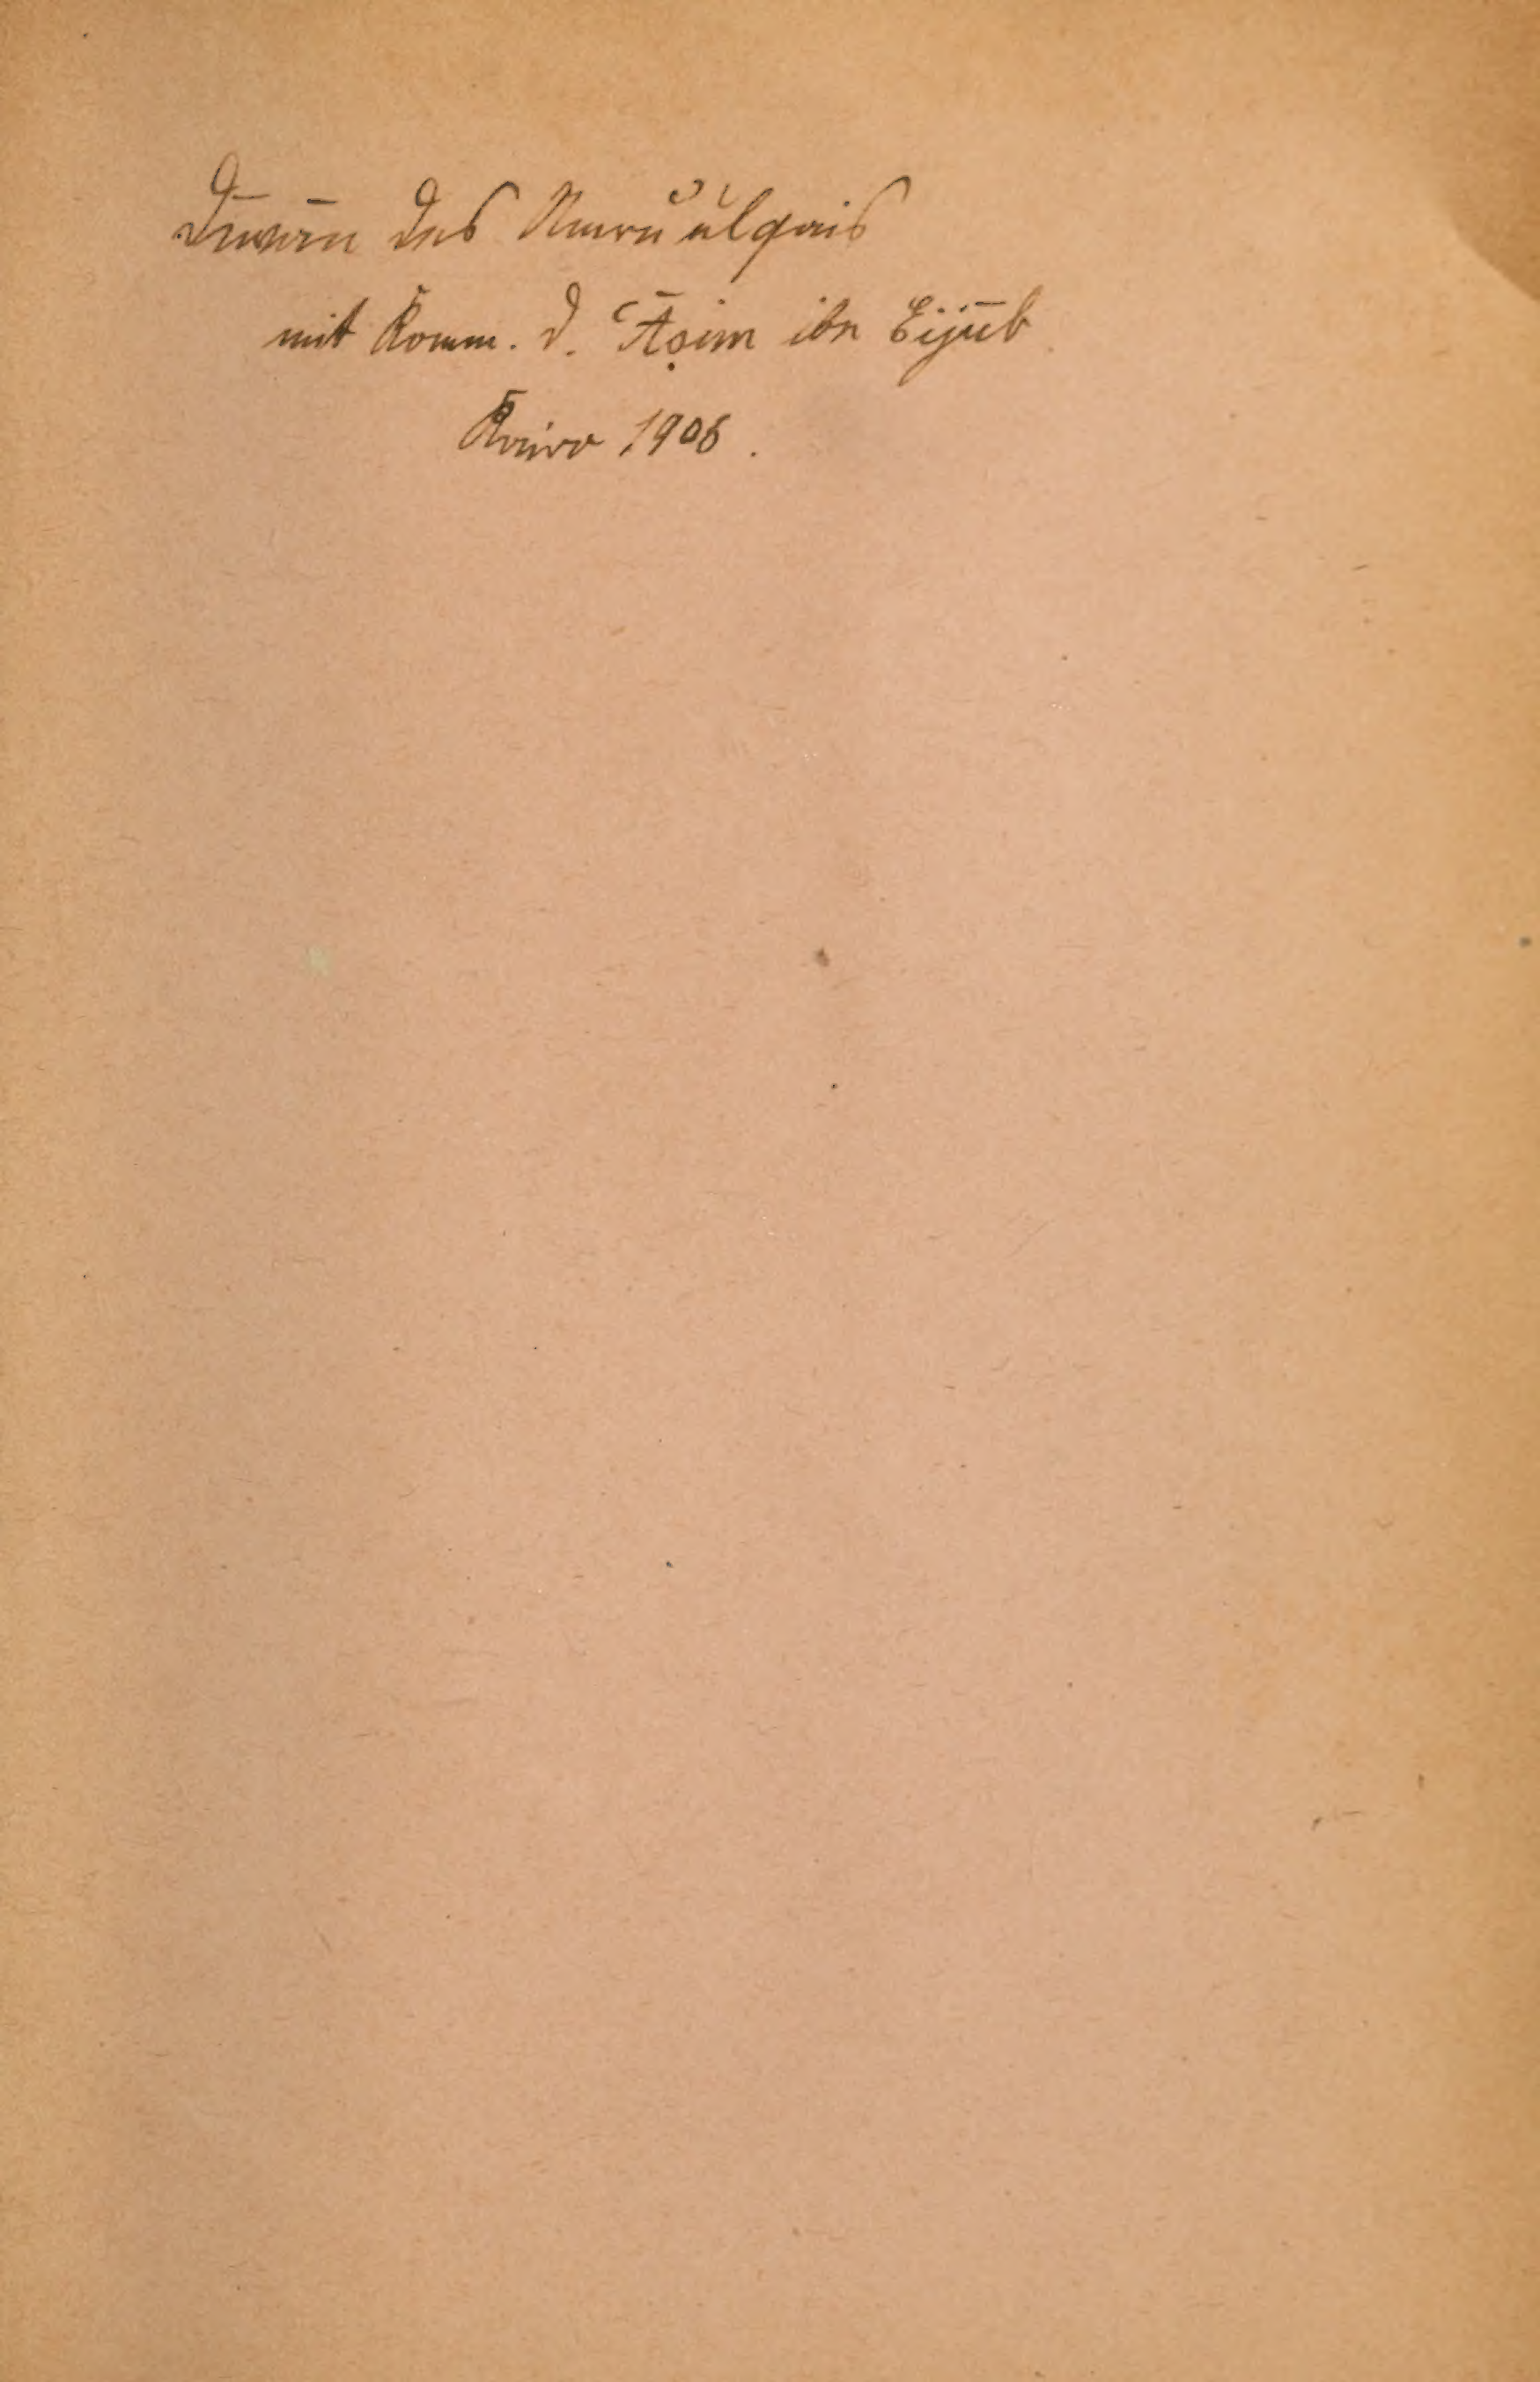 Dīwān des Amruʾulqais
mit Komm. d. ʿĀṣim ibn Eijūb
Kairo 1906.